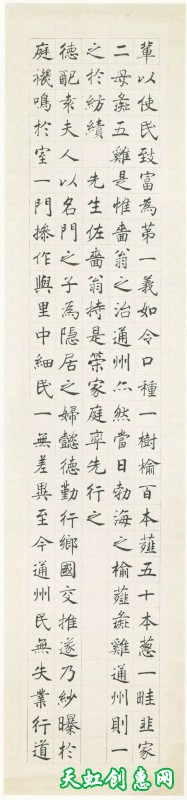 輩以使民致富為第一義如令口種一樹榆百本薤五十本蔥一畦韭家
二母彘五雞是惟嗇翁之治通州亦然當日勃海之榆薤彘雞通州則一
之於紡績　先生佐嗇翁持是策家庭率先行之
德配袁夫人以名門之子為隱居之婦懿德勤行鄉國交推遂乃紗曝於
庭機鳴於室一門操作與里中細民一無差異至今通州民無失業行道
天虹创惠网